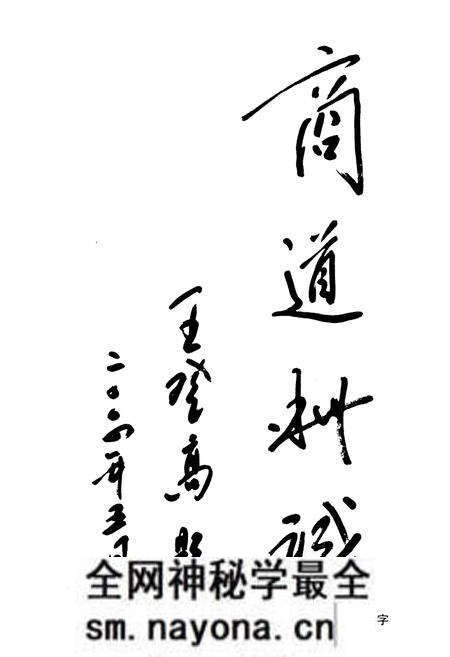 商道耕
王登高
二〇〇六年五月
全网神秘学最全
sm.nayona.cn
字